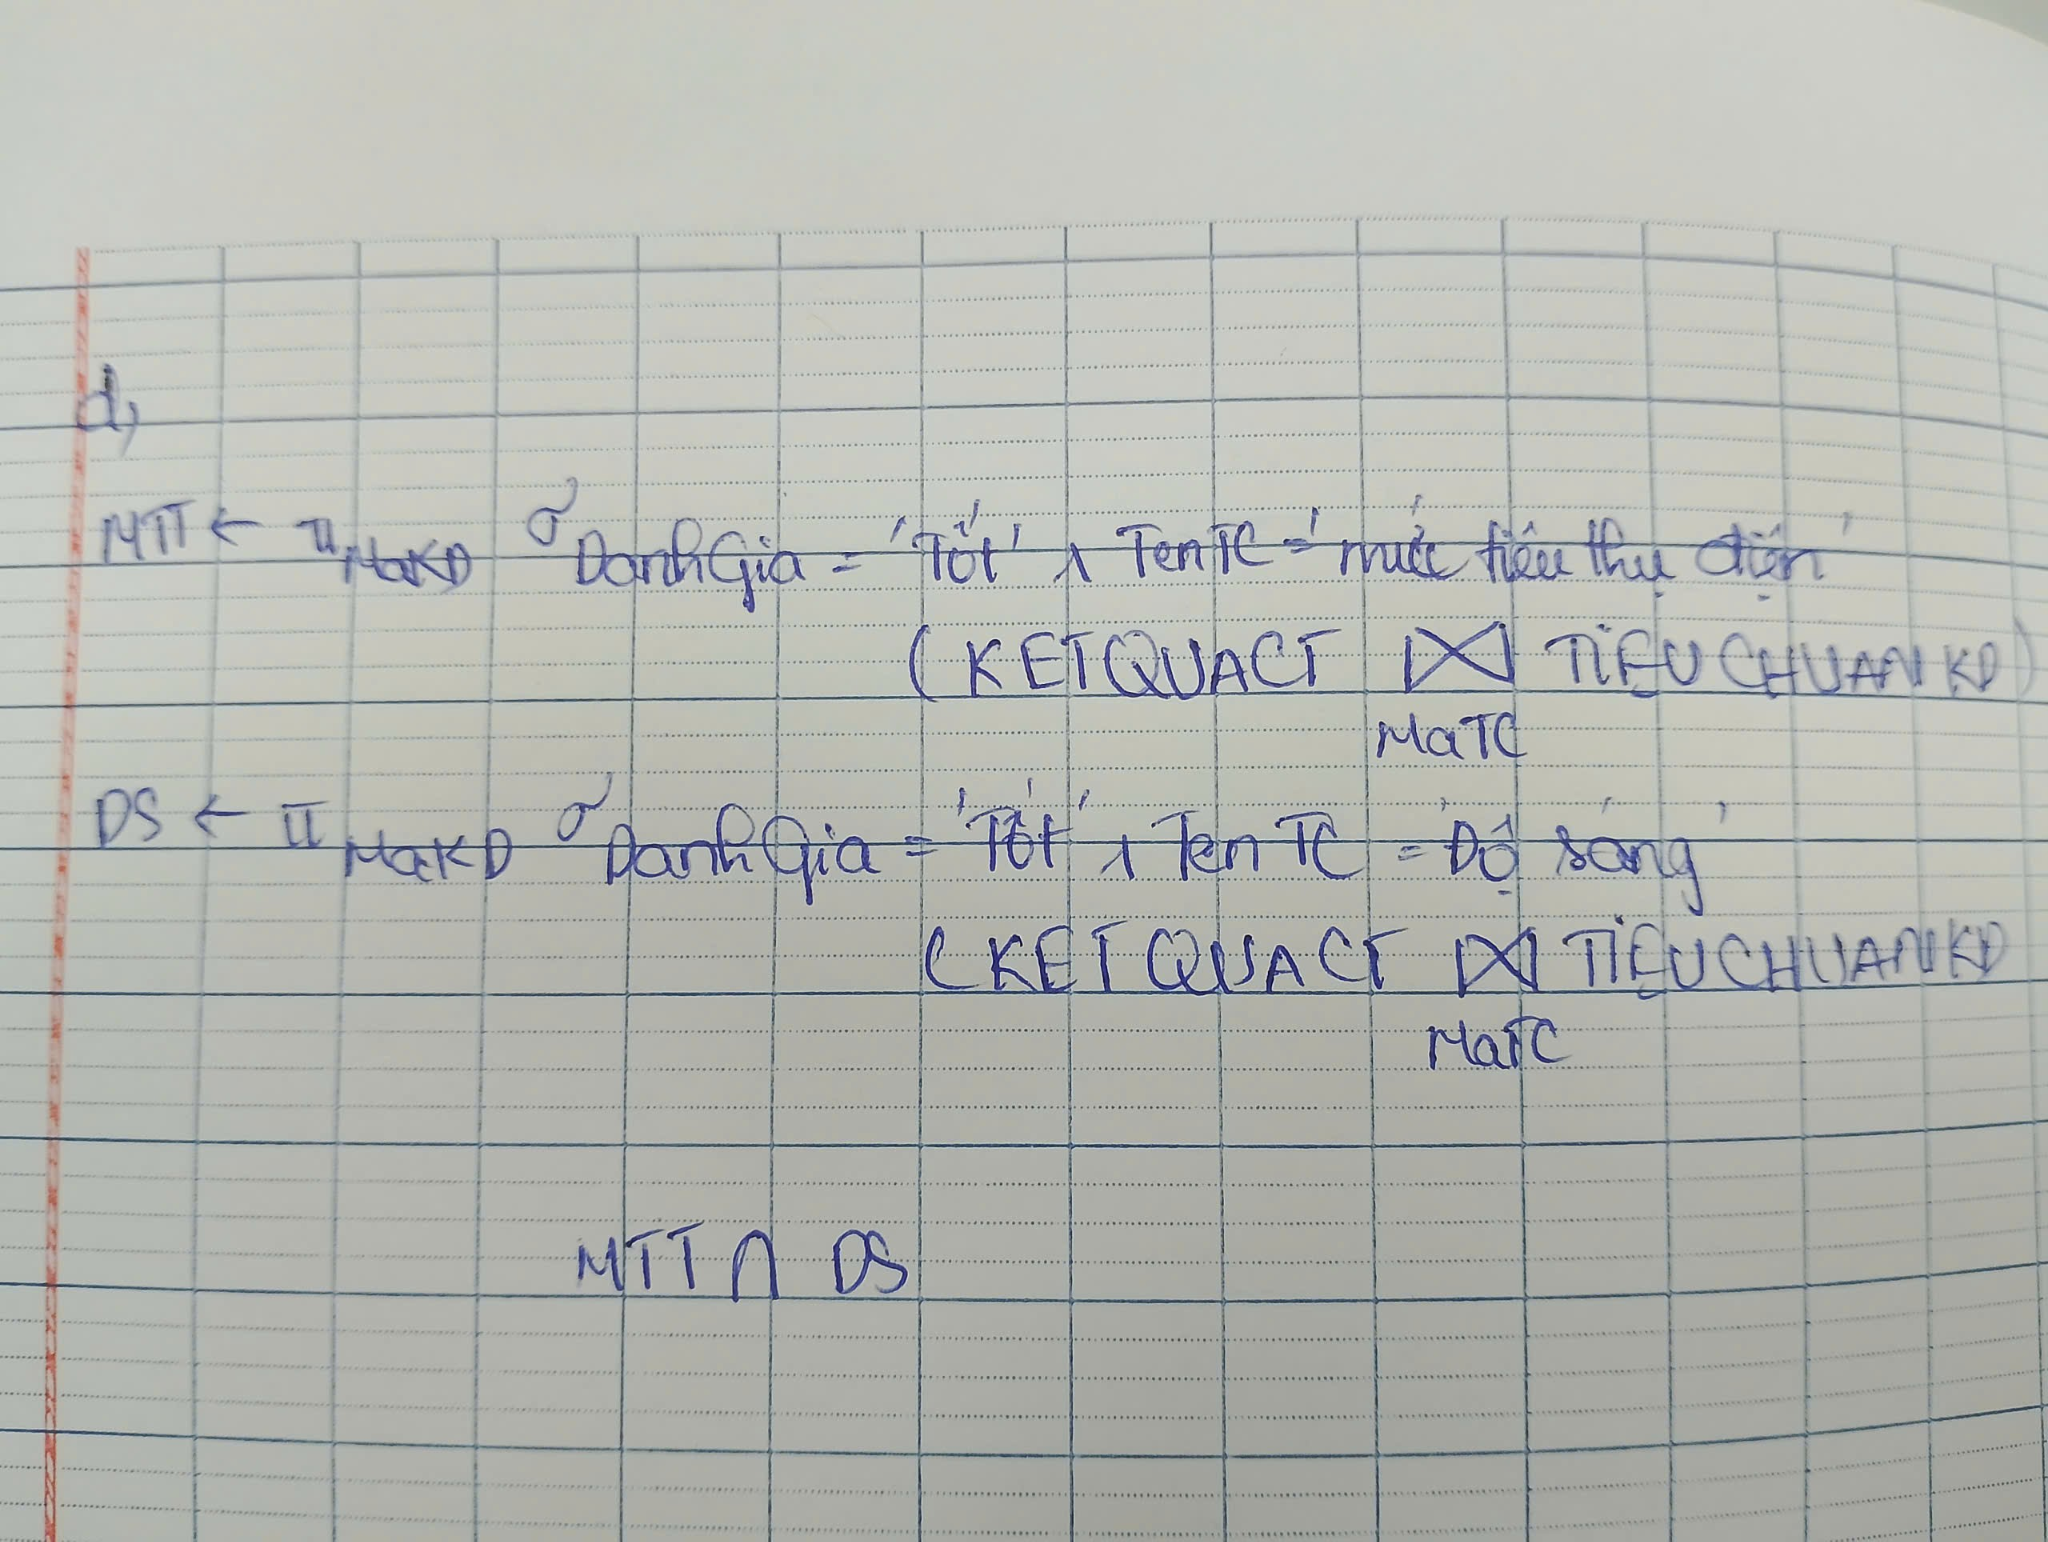 d,
MTT ← π MaKD σ DanhGia = 'Tốt' ∧ TenTC = 'mức tiêu thụ điện'
( KETQUACT ⋈ TIEUCHUANKD)
MaTC
DS ← π MaKD σ DanhGia = 'Tốt' ∧ TenTC = 'Độ sáng'
( KETQUACT ⋈ TIEUCHUANKD
MaTC
MTT ∩ DS